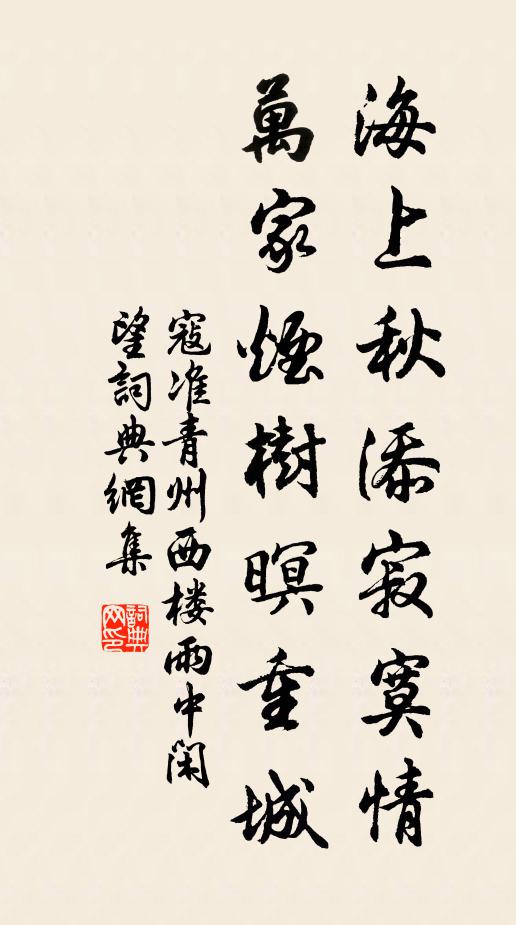 海上秋添寂寞情
萬家煙樹暝重城
寇准青州西楼雨中閑
望詞典網集
詞典网印